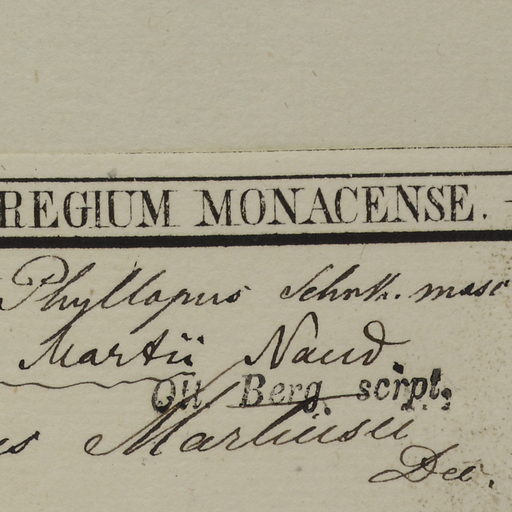 REGIUM MONACENSE.
Phyllopus Schott. masc
Martii Naud.
Ott Berg scrpt.
us Martiusii
Dec.